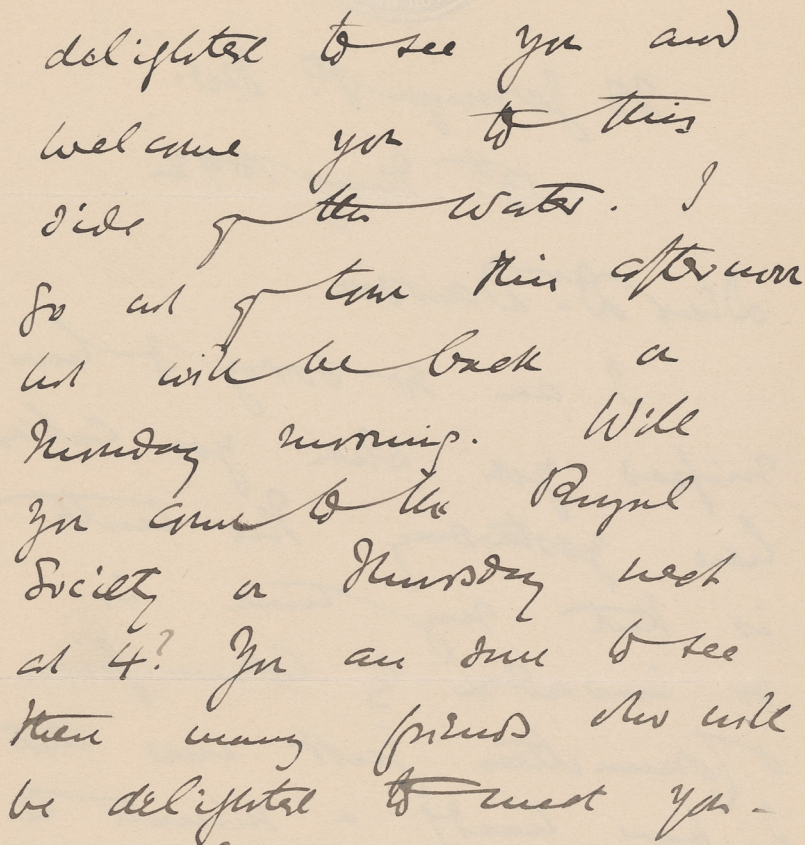 delighted to see you and
welcome you to this
side of the water. I
go out of town this afternoon
but will be back on
Monday morning. Will
you come to the Royal
Society on Thursday next
at 4? You are sure to see
there many friends who will
be delighted to meet you.